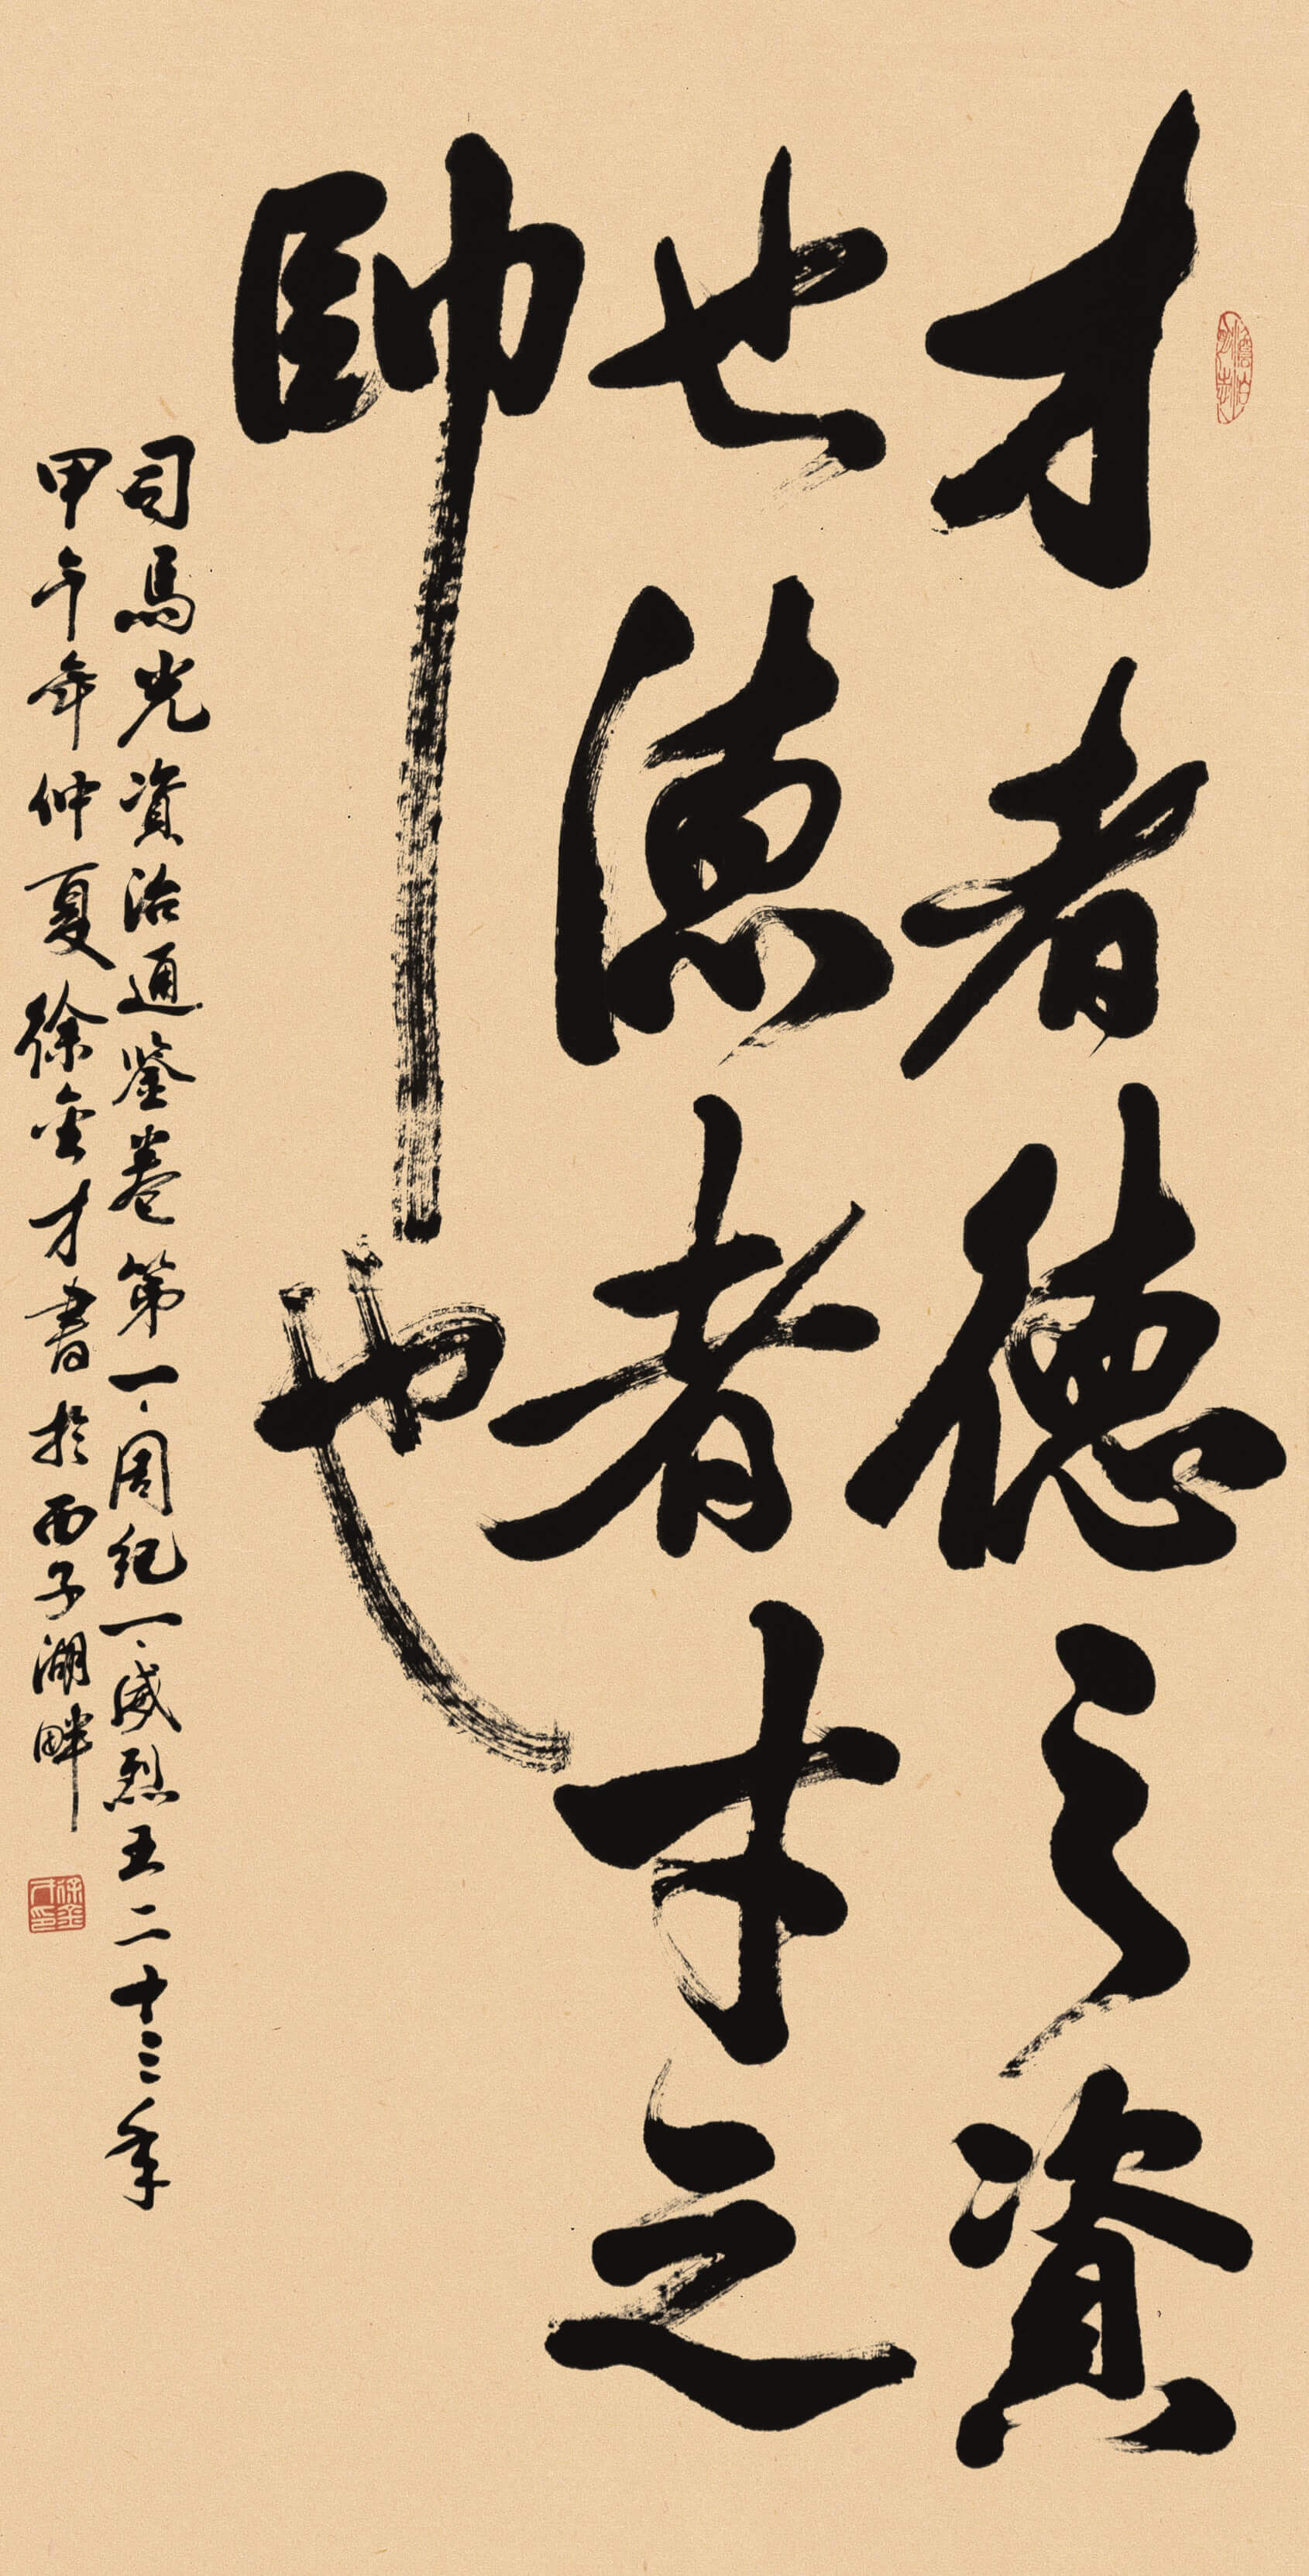 才者德之資
也德者才之
帥也
司馬光資治通鉴卷第一周纪一威烈王二十三年
甲午年仲夏徐金才書於西子湖畔
徐金才印